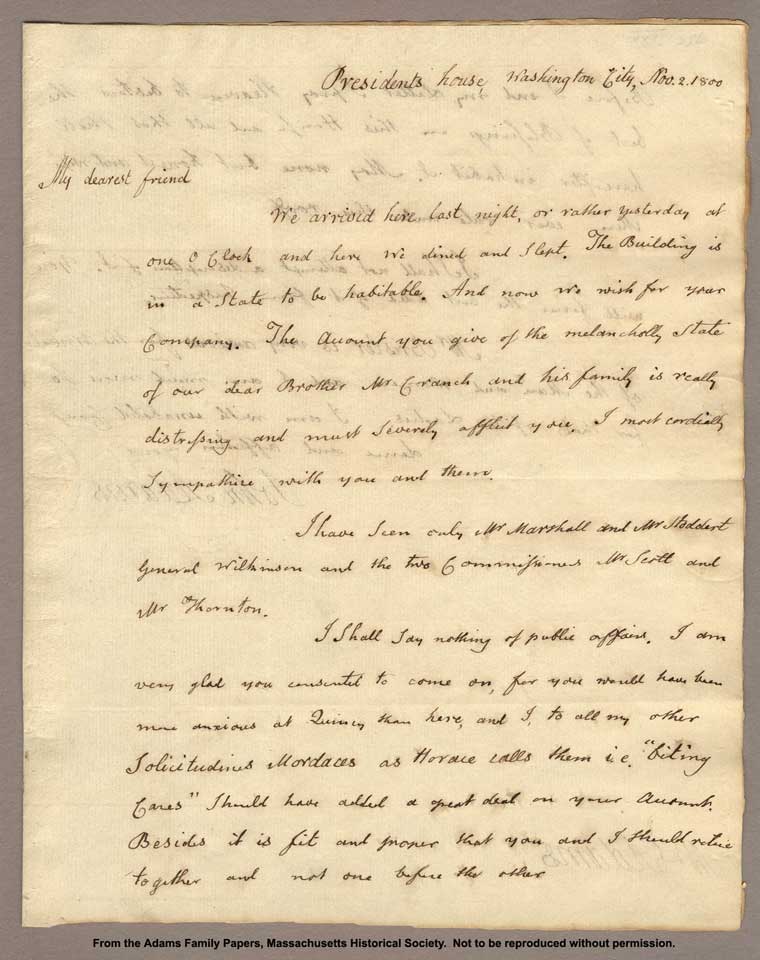 Presidents house, Washington City, Nov. 2. 1800
My dearest friend
We arrived here last night, or rather yesterday at
one O Clock and here we dined and Slept. The Building is
in a State to be habitable. And now we wish for your
Company. The Account you give of the melancholly State
of our dear Brother Mr Cranch and his family is really
distressing and must Severely afflict you. I most cordially
Sympathize with you and them.
I have Seen only Mr Marshall and Mr Stoddert
General Wilkinson and the two Commissioners Mr Scott and
Mr Thornton.
I Shall Say nothing of public affairs. I am
very glad you consented to come on, for you would have been
more anxious at Quincy than here, and I, to all my other
Solicitudines Mordaces as Horace calls them i.e. "biting
Cares" Should have added a great deal on your Account.
Besides it is fit and proper that you and I Should retire
together and not one before the other
From the Adams Family Papers, Massachusetts Historical Society. Not to be reproduced without permission.